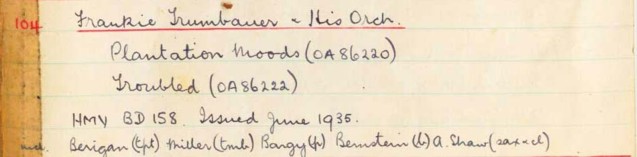 104 Frankie Trumbauer & His Orch.
Plantation Moods (OA86220)
Troubled (OA86222)
HMV BD 158. Issued June 1935.
incl. Berigan (tpt) Miller (tmb) Bargy (p) Bernstein (b) A. Shaw (sax & cl)